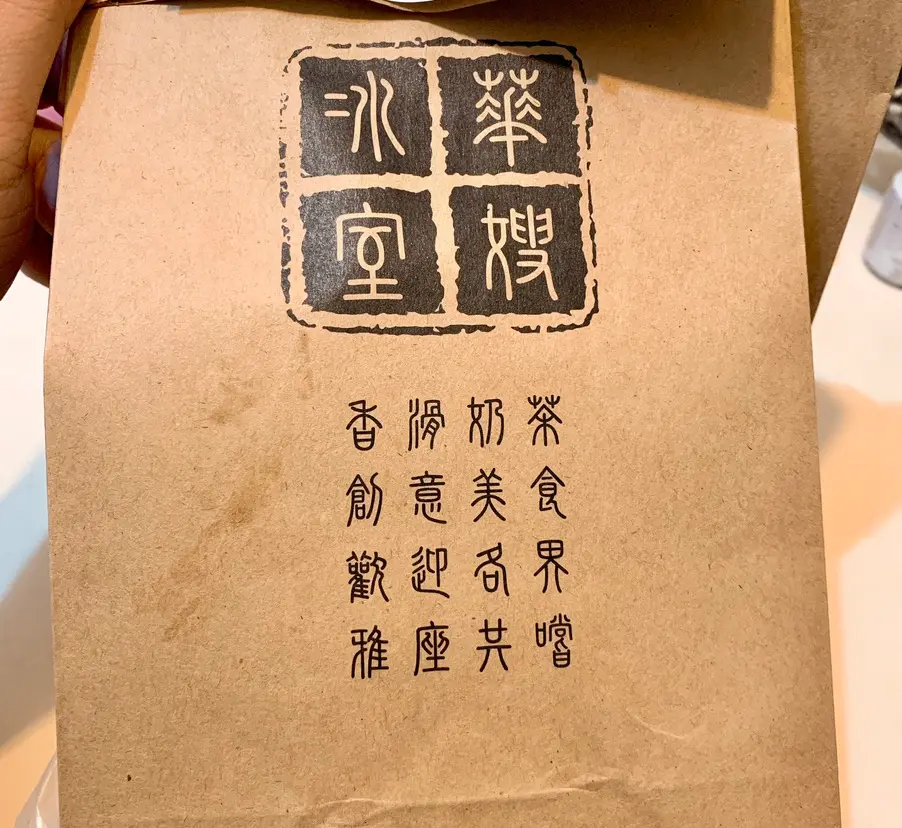 華嫂
冰室
香滑奶茶
創意美食
歡迎各界
雅座共嚐